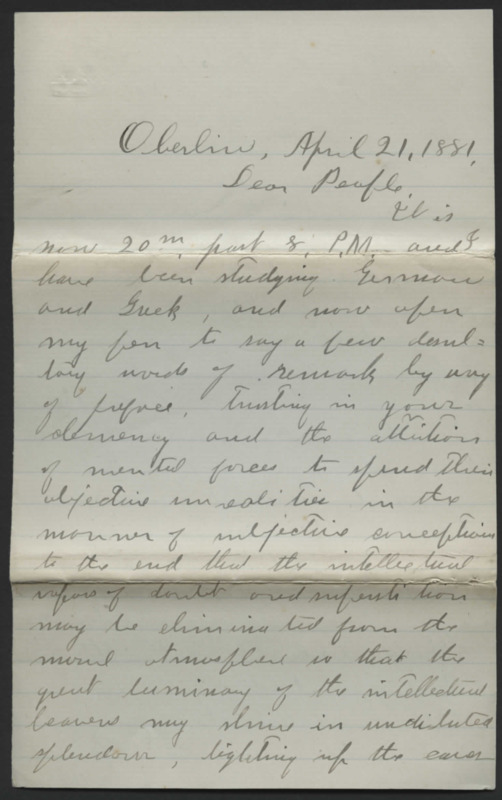 Oberlin, April 21, 1881.
Dear People,
It is
now 20m. past 8, P.M. and I
have been studying German
and Greek, and now open
my pen to say a few desul=
tory words of remark by way
of preface, trusting in your
clemency and the
of mental forces to spend their
objective unrealities in the
manner of subjective conceptions
to the end that the intellectual
vapors of doubt and superstition
may be eliminated from the
moral atmosphere so that the
great luminary of the intellectual
heavens may shine in undiluted
splendour, lighting up the